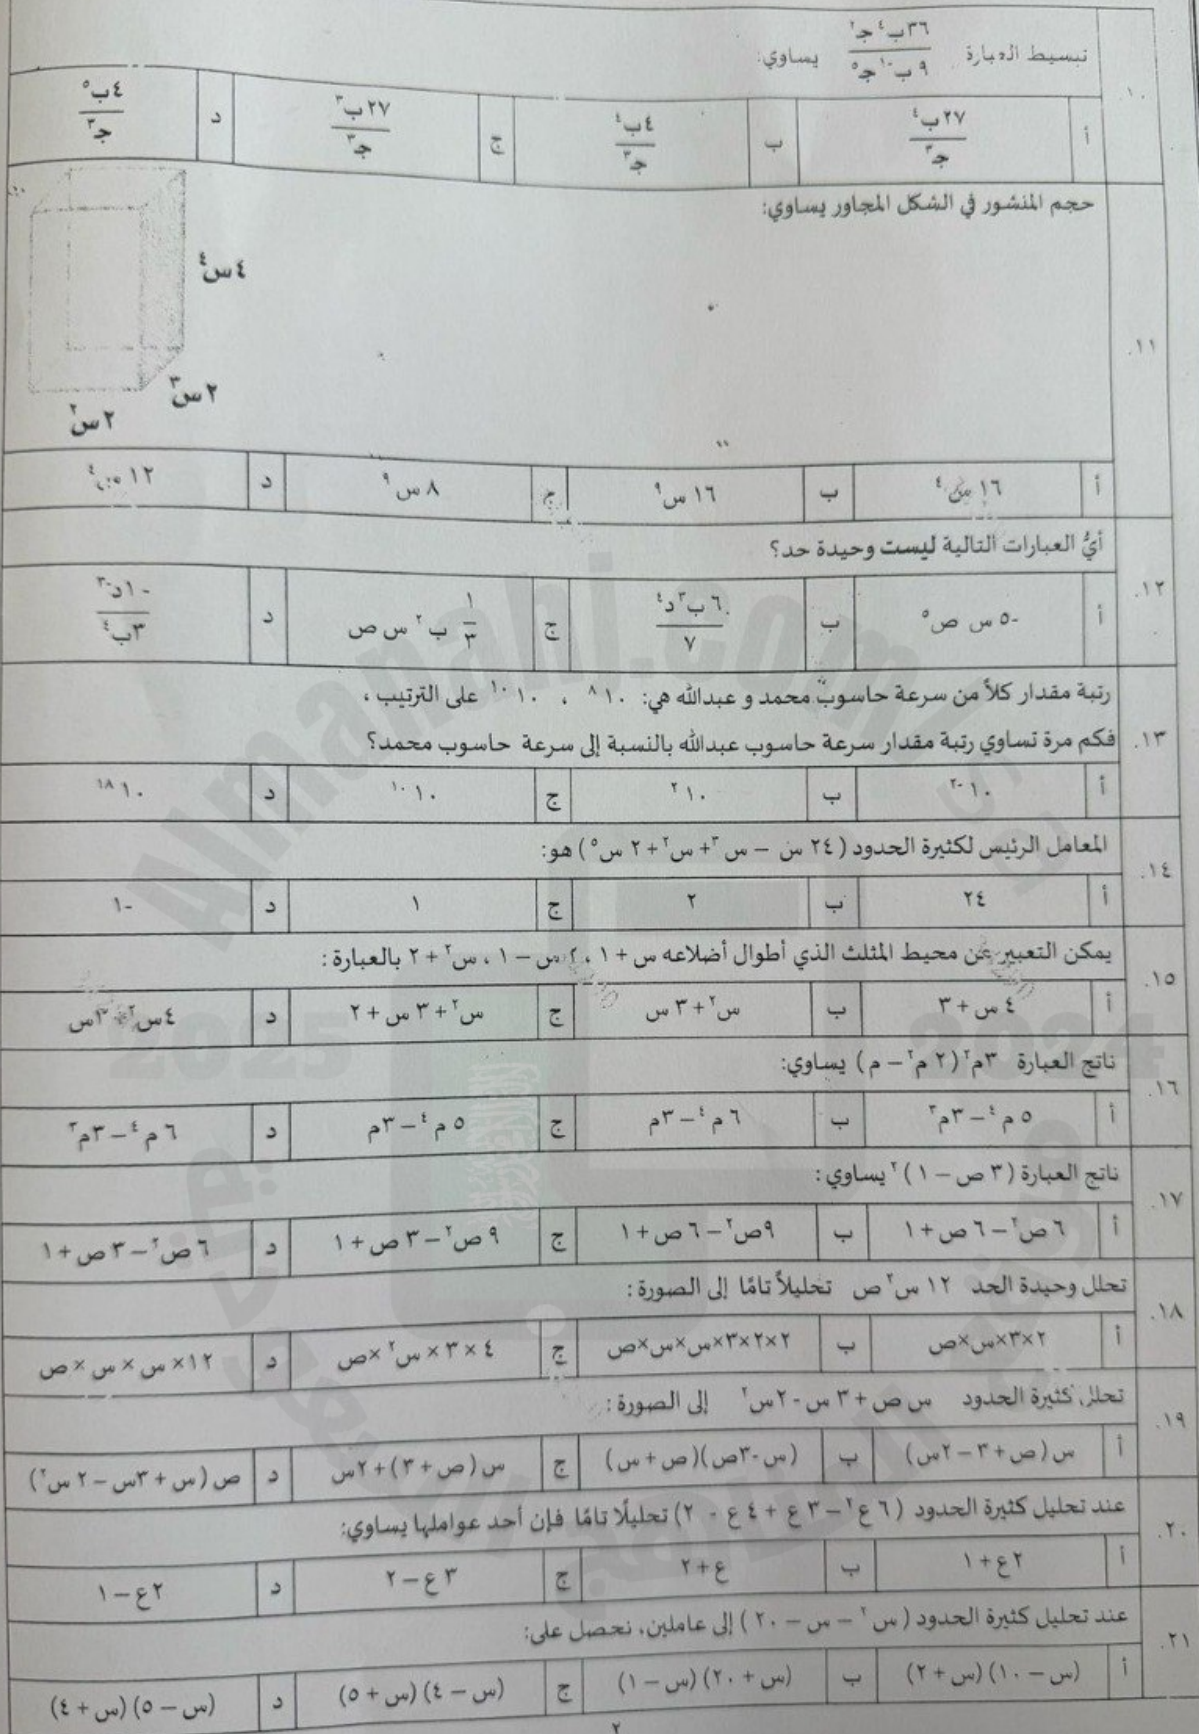 ١٠. تبسيط العبارة ٣٦ب٤ج٢ / ٩ب-١ج٥ يساوي:
أ ٢٧ب٤ / ج٣ ب ٤ب٤ / ج٣ ج ٢٧ب٣ / ج٣ د ٤ب٥ / ج٣
١١. حجم المنشور في الشكل المجاور يساوي:
٤س٤
٢س٣
٢س٢
أ ١٦ س٤ ب ١٦ س٩ ج ٨ س٩ د ١٢ س٤
١٢. أيُّ العبارات التالية ليست وحيدة حد؟
أ -٥ س ص٥ ب ٦ب٣د٤ / ٧ ج ١/٣ ب٢ س ص د -١٠د-٣ / ٣ب٤
رتبة مقدار كلاً من سرعة حاسوب محمد و عبدالله هي: ١٠٨ ، ١٠١٠ على الترتيب ،
١٣. فكم مرة تساوي رتبة مقدار سرعة حاسوب عبدالله بالنسبة إلى سرعة حاسوب محمد؟
أ ١٠-٢ ب ١٠٢ ج ١٠١٠ د ١٠١٨
١٤. المعامل الرئيس لكثيرة الحدود (٢٤ س – س٣ + س٢ + ٢ س٥) هو:
أ ٢٤ ب ٢ ج ١ د -١
١٥. يمكن التعبير عن محيط المثلث الذي أطوال أضلاعه س + ١ ، ٢س – ١ ، س٢ + ٢ بالعبارة :
أ ٤ س + ٣ ب س٢ + ٣ س ج س٢ + ٣ س + ٢ د ٤س٢ + ٣س
١٦. ناتج العبارة ٣م٢ (٢ م٢ – م) يساوي:
أ ٥ م٤ – ٣م٣ ب ٦ م٤ – ٣م ج ٥ م٤ – ٣م د ٦ م٤ – ٣م٣
١٧. ناتج العبارة (٣ ص – ١)٢ يساوي :
أ ٦ ص٢ – ٦ ص + ١ ب ٩ص٢ – ٦ ص + ١ ج ٩ ص٢ – ٣ ص + ١ د ٦ ص٢ – ٣ ص + ١
١٨. تحلل وحيدة الحد ١٢ س٢ ص تحليلاً تامًا إلى الصورة :
أ ٢×٣×س×ص ب ٢×٢×٣×س×س×ص ج ٤ × ٣ × س٢ ×ص د ١٢× س × س × ص
١٩. تحلل كثيرة الحدود س ص + ٣ س - ٢س٢ إلى الصورة :
أ س (ص + ٣ – ٢س) ب (س -٣ص)(ص + س) ج س (ص + ٣) + ٢س د ص (س + ٣س – ٢ س٢)
٢٠. عند تحليل كثيرة الحدود (٦ ع٢ – ٣ ع + ٤ ع - ٢) تحليلًا تامًا فإن أحد عواملها يساوي:
أ ٢ع + ١ ب ع + ٢ ج ٣ ع – ٢ د ٢ع – ١
٢١. عند تحليل كثيرة الحدود (س٢ – س – ٢٠) إلى عاملين، نحصل على:
أ (س – ١٠) (س + ٢) ب (س + ٢٠) (س – ١) ج (س – ٤) (س + ٥) د (س – ٥) (س + ٤)
٢
Almanahj.com
2024
2025